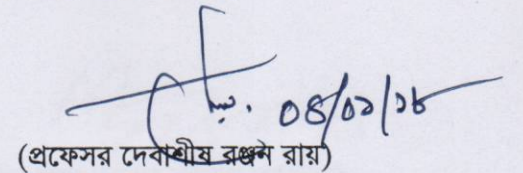 ০৪/০১/১৮
(প্রফেসর দেবাশীষ রঞ্জন রায়)